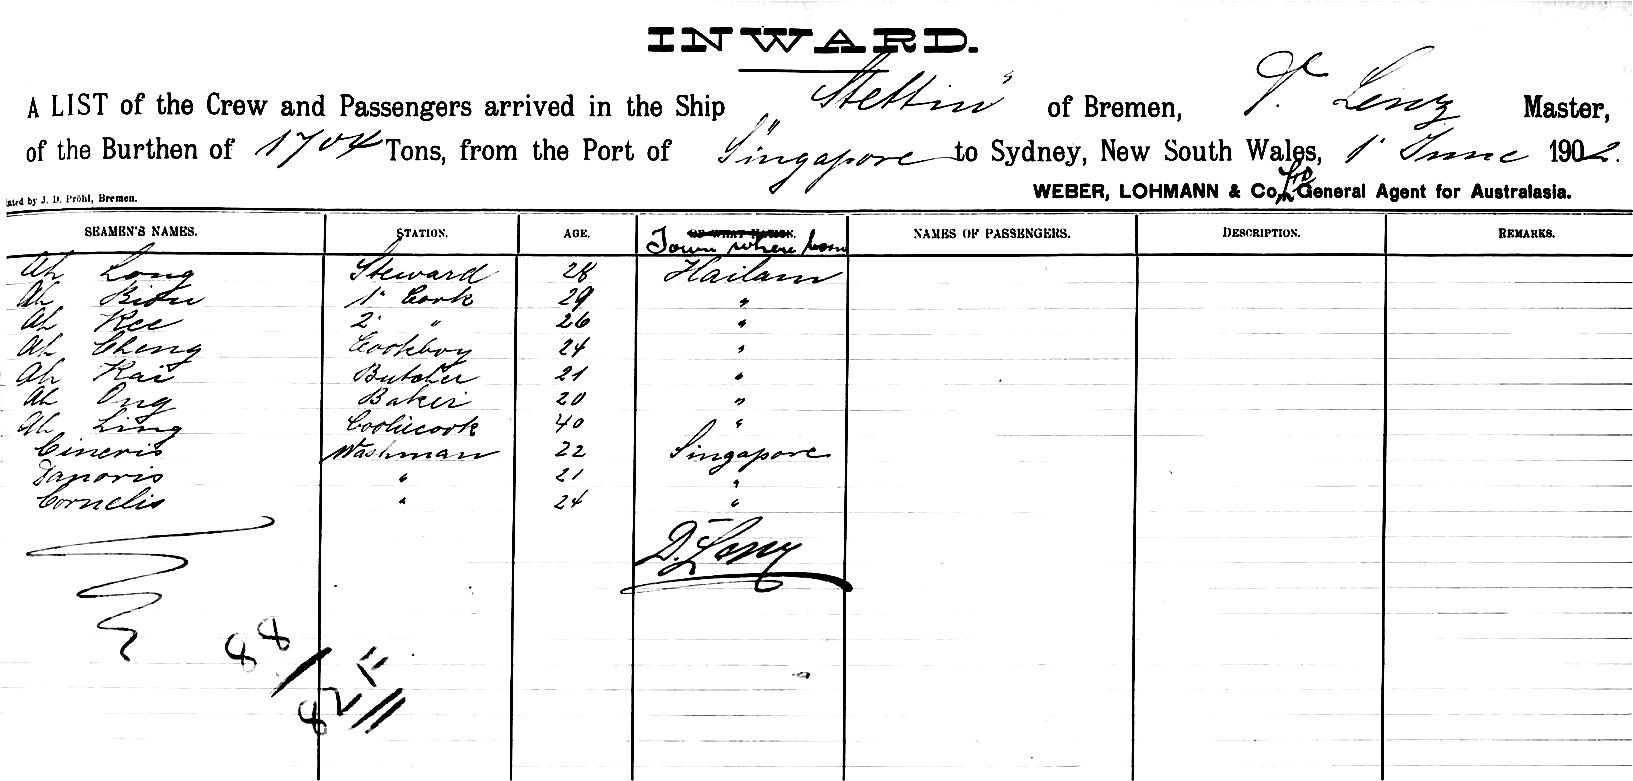 INWARD.
A LIST of the Crew and Passengers arrived in the Ship "Stettin" of Bremen, D. Lenz Master,
of the Burthen of 1704 Tons, from the Port of Singapore to Sydney, New South Wales, 1' June 1902.
WEBER, LOHMANN & Co, General Agent for Australasia.
inted by J. D. Pröhl, Bremen.
SEAMEN'S NAMES. STATION. AGE. OF WHAT NATION. NAMES OF PASSENGERS. DESCRIPTION. REMARKS.
Town where born
Ah Long Steward 28 Hailam
Ah Bion 1" Cook 29 "
Ah Kee 2' " 26 "
Ah Cheng Cookboy 24 "
Ah Kai Butcher 21 "
Ah Ong Baker 20 "
Ah Ling Cooliecook 40 "
Cineris Washman 22 Singapore
Tanoris " 21 "
Cornelis " 24 "
D. Lenz
88